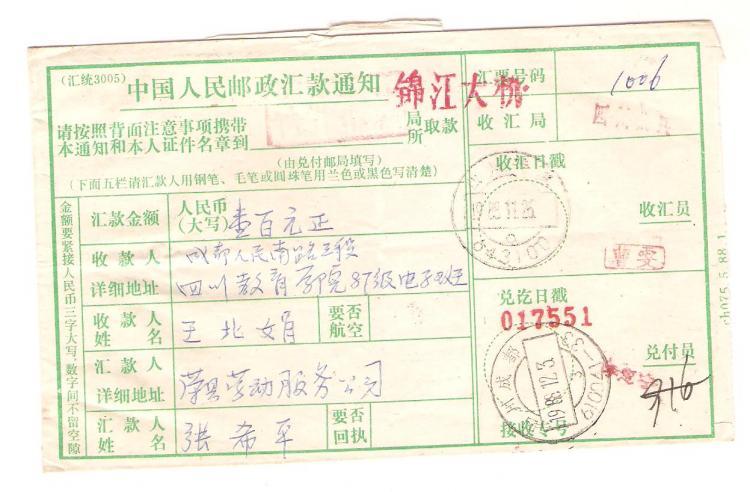 (汇统3005)
中国人民邮政汇款通知
锦江大桥
汇票号码 1006
请按照背面注意事项携带
本通知和本人证件名章到
局
所
取款
收汇局
(由兑付邮局填写)
(下面五栏请汇款人用钢笔、毛笔或圆珠笔用兰色或黑色写清楚)
收汇日戳
643100
收汇员
金额要紧接人民币三字大写,数字间不留空隙
汇款金额
人民币
(大写)
壹百元正
收款人
详细地址
成都人民南路三段
四川教育学院87级电子班
收款人
姓名
王北娟
要否
航空
兑讫日戳
017551
兑付员
汇款人
详细地址
荣县劳动服务公司
汇款人
姓名
张希平
要否
回执
接收专号
916